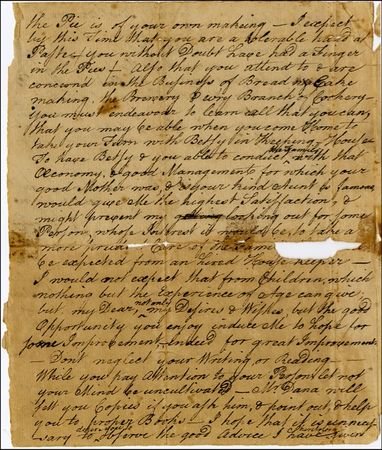 the Pie is of your own making — I expect
by this Time that you are a tolerable hand at
Pastee you without Doubt have had a Finger
in the Pies! Also that you attend to & are
concern'd in the Business of Bread & Cake
making, the Brewery & ev'ry Branch of Cookery
You must endeavour to learn all that you can,
that you may be able when you come Home to
take your Turn with Betsy in Keeping House
To have Betsy & you able to conduct the Family with that
Œconomy, & good Management for which your
good Mother was, & your kind Aunt is famous
would give Me the highest Satisfaction, &
might prevent my looking out for some
Person, whose Interest it would be, to take a
more prudent Care of the same
be expected from an hired House keeper —
I would not expect that from Children, which
nothing but the Experience of Age can give;
but my Dear, not only my Desires & Wishes, but the good
Opportunity you enjoy induce Me to hope for
some Improvement, indeed for great Improvements
— Don't neglect your Writing or Reading —
While you pay Attention to your Person let not
your Mind be uncultivated — Mr Dana will
sett you Copies if you ask him, & point out, & help
you to proper Books — I hope that it is unneces
sary to desire you to observe the good Advice I have given